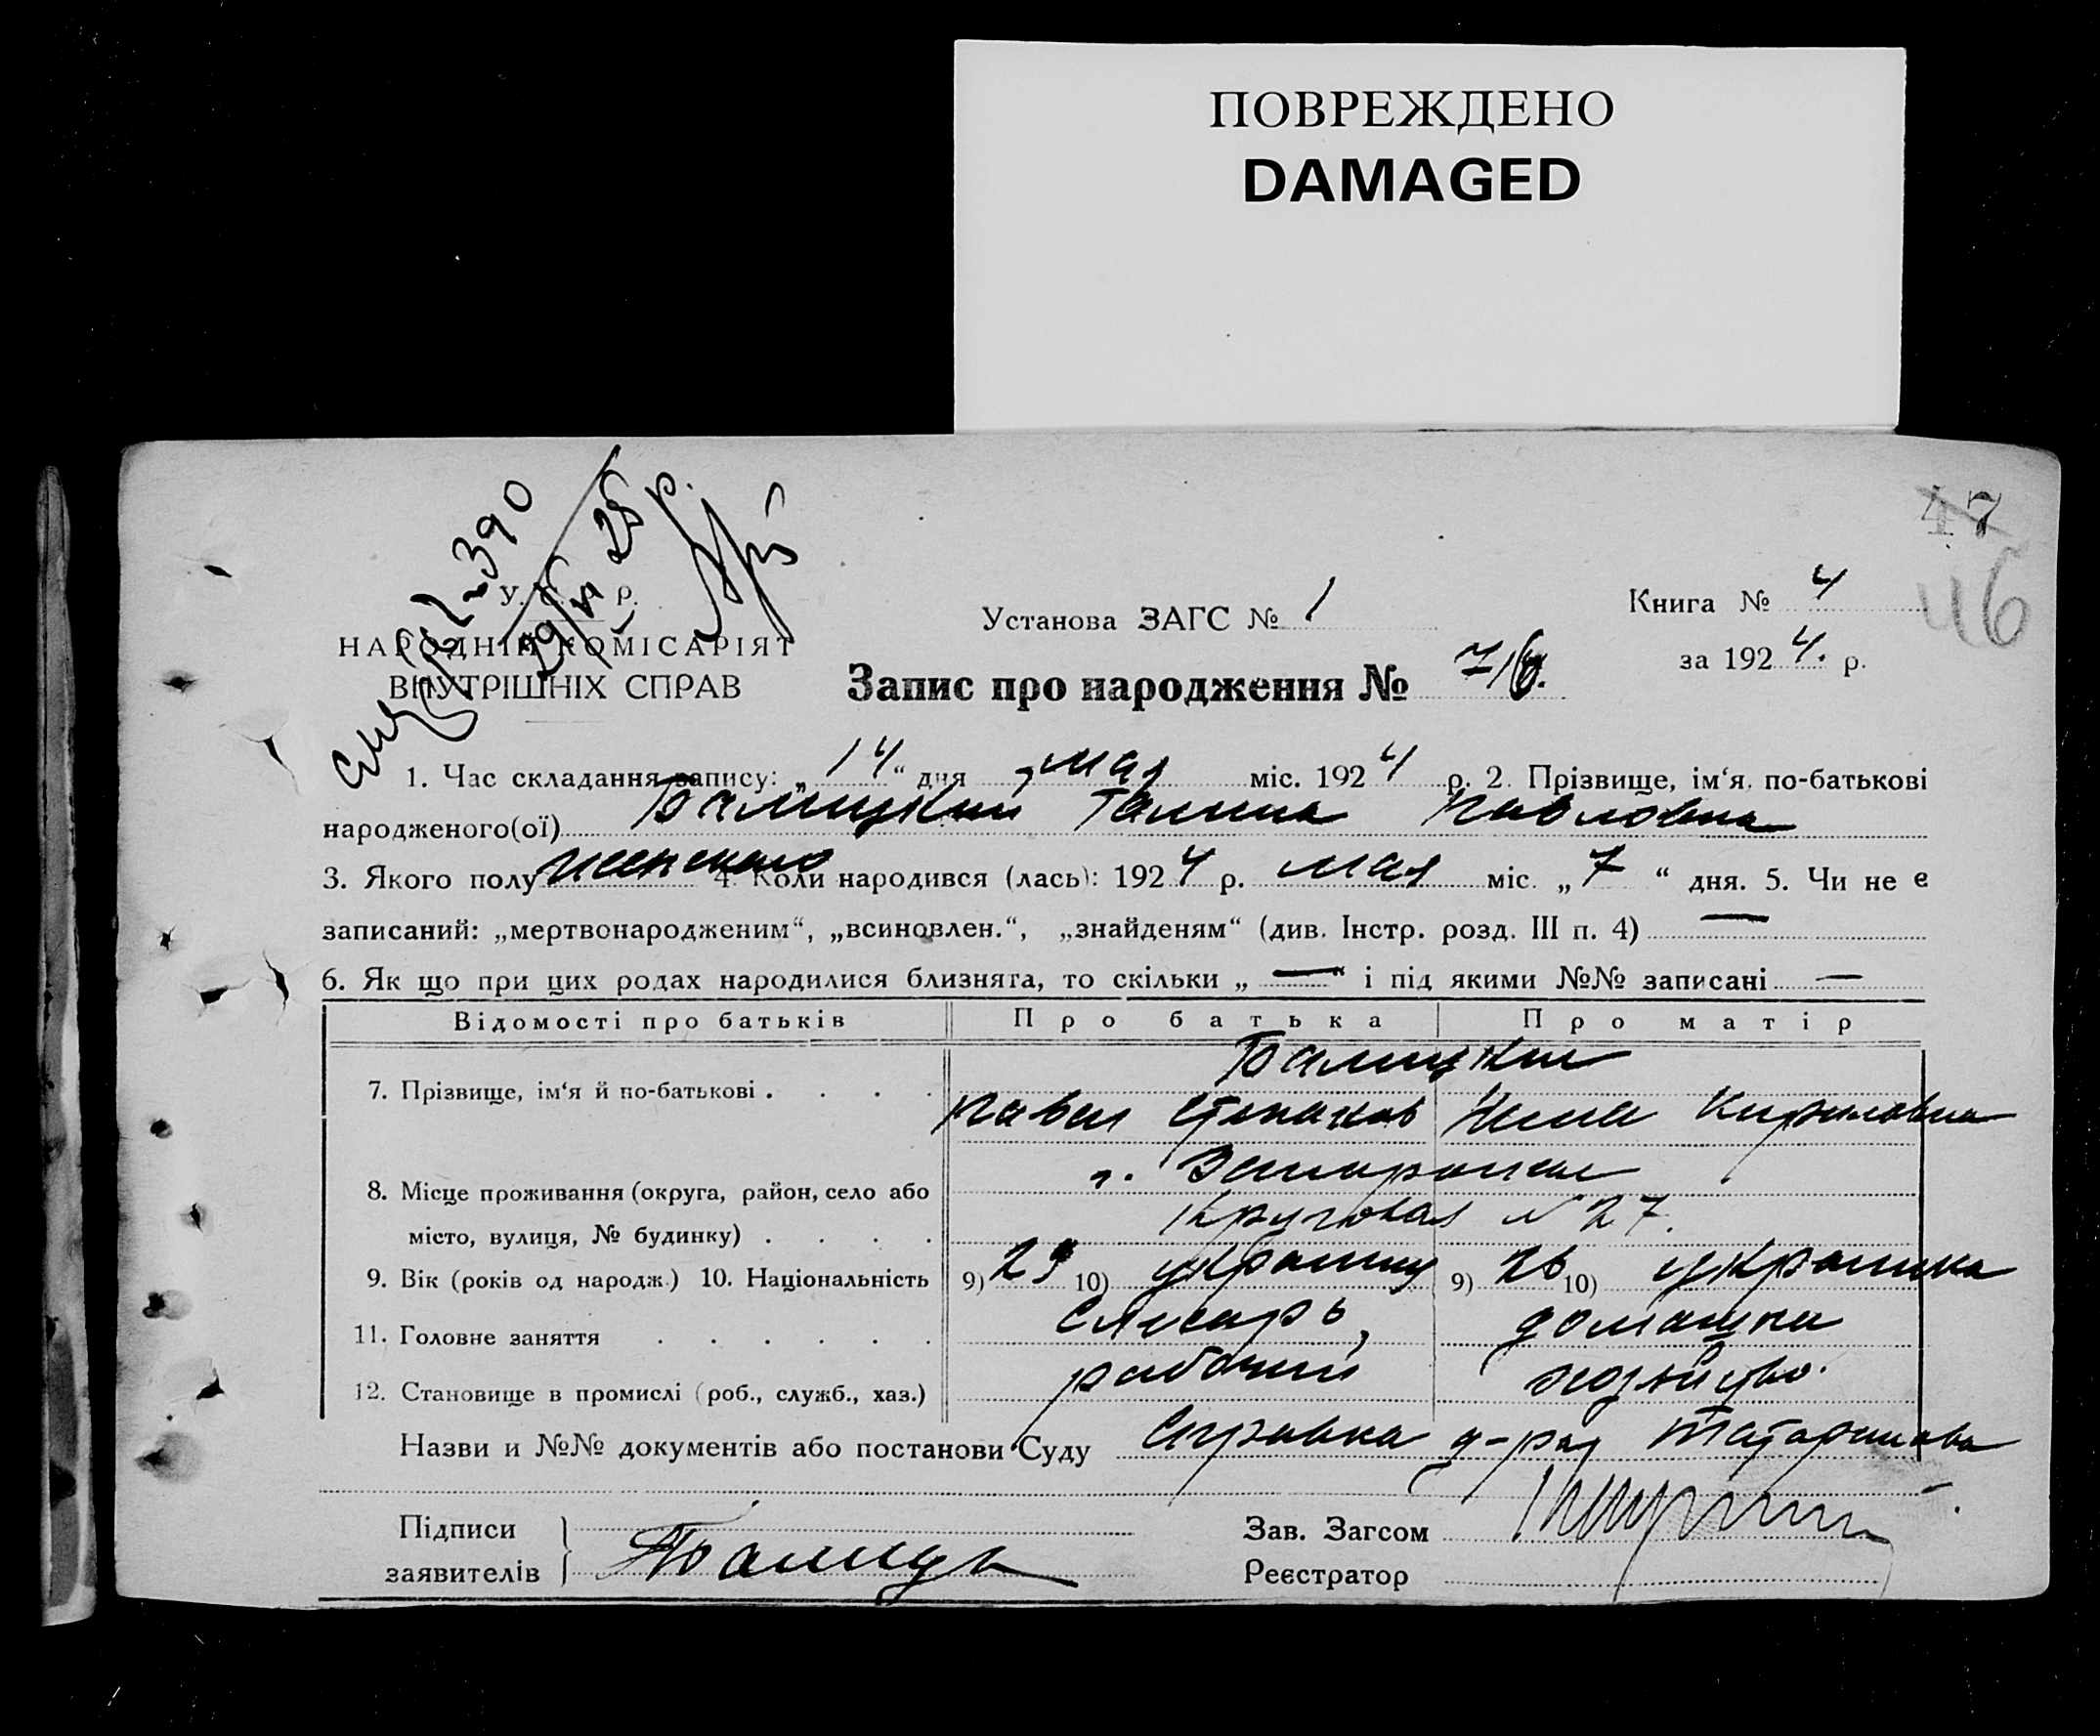 ПОВРЕЖДЕНО
DAMAGED
47
46
390
29/VI 25 р.
У. С. Р. Р.
НАРОДНІЙ КОМІСАРІЯТ
ВНУТРІШНІХ СПРАВ
Установа ЗАГС № 1
Книга № 4
за 1924. р.
Запис про народження № 716.
1. Час складання запису: „14“ дня мая міс. 1924 р. 2. Прізвище, ім‘я, по-батькові
народженого(ої) Балицкий Галина Павловна
3. Якого полу женского 4. Коли народився (лась): 1924 р. мая міс. „7“ дня. 5. Чи не є
записаний: „мертвонародженим“, „всиновлен.“, „знайденям“ (див. Інстр. розд. III п. 4) —
6. Як що при цих родах народилися близнята, то скільки „—“ і під якими №№ записані —
Відомості про батьків Про батька Про матір
Балицкий
7. Прізвище, ім‘я й по-батькові Павел Нина Кириловна
8. Місце проживання (округа, район, село або г. Запорожье
місто, вулиця, № будинку) Круговая № 27.
9. Вік (років од народж.) 10. Національність 9) 29 10) украинец 9) 26 10) украинка
11. Головне заняття слесарь, домашнее
12. Становище в промислі (роб., служб., хаз.) рабочий хозяйство.
Назви и №№ документів або постанови Суду Справка д-ра Татаринова
Підписи
заявителів
Балицк
Зав. Загсом
Реєстратор